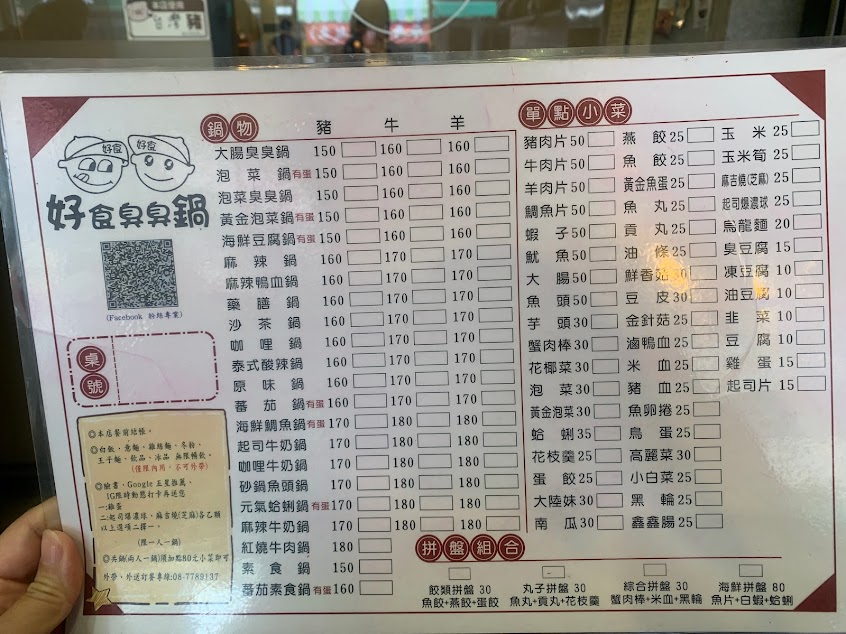 台灣豬
好食
好食
好食臭臭鍋
(Facebook 粉絲專業)
桌號
◎本店餐前結帳。
◎白飯、意麵、雞絲麵、冬粉、
王子麵、飲品、冰品 無限暢飲。
(僅限內用，不可外帶)
◎臉書、Google 五星推薦、
IG限時動態打卡再送您
一:雞蛋
二:起司爆濃球、麻吉燒(芝麻)各乙顆
以上選項二擇一。
(限一人一鍋)
◎共鍋(兩人一鍋)須加點80元小菜即可
外帶、外送訂餐專線:08-7789137
鍋物 豬 牛 羊
大腸臭臭鍋 150 160 160
泡菜鍋有蛋 150 160 160
泡菜臭臭鍋 150 160 160
黃金泡菜鍋有蛋 150 160 160
海鮮豆腐鍋有蛋 150 160 160
麻辣鍋 160 170 170
麻辣鴨血鍋 160 170 170
藥膳鍋 160 170 170
沙茶鍋 160 170 170
咖哩鍋 160 170 170
泰式酸辣鍋 160 170 170
原味鍋 160 170 170
蕃茄鍋有蛋 160 170 170
海鮮鯛魚鍋有蛋 170 180 180
起司牛奶鍋 170 180 180
咖哩牛奶鍋 170 180 180
砂鍋魚頭鍋 170 180 180
元氣蛤蜊鍋有蛋 170 180 180
麻辣牛奶鍋 170 180 180
紅燒牛肉鍋 180
素食鍋 150
蕃茄素食鍋有蛋 160
單點小菜
豬肉片 50 燕餃 25 玉米 25
牛肉片 50 魚餃 25 玉米筍 25
羊肉片 50 黃金魚蛋 25 麻吉燒(芝麻) 25
鯛魚片 50 魚丸 25 起司爆濃球 25
蝦子 50 貢丸 25 烏龍麵 20
魷魚 50 油條 25 臭豆腐 15
大腸 50 鮮香菇 30 凍豆腐 10
魚頭 50 豆皮 30 油豆腐 10
芋頭 30 金針菇 25 韭菜 10
蟹肉棒 30 滷鴨血 25 豆腐 10
花椰菜 30 米血 25 雞蛋 15
泡菜 30 豬血 25 起司片 15
黃金泡菜 30 魚卵捲 25
蛤蜊 35 鳥蛋 25
花枝羹 25 高麗菜 30
蛋餃 25 小白菜 25
大陸妹 30 黑輪 25
南瓜 30 鑫鑫腸 25
拼盤組合
餃類拼盤 30 丸子拼盤 30 綜合拼盤 30 海鮮拼盤 80
魚餃+燕餃+蛋餃 魚丸+貢丸+花枝羹 蟹肉棒+米血+黑輪 魚片+白蝦+蛤蜊